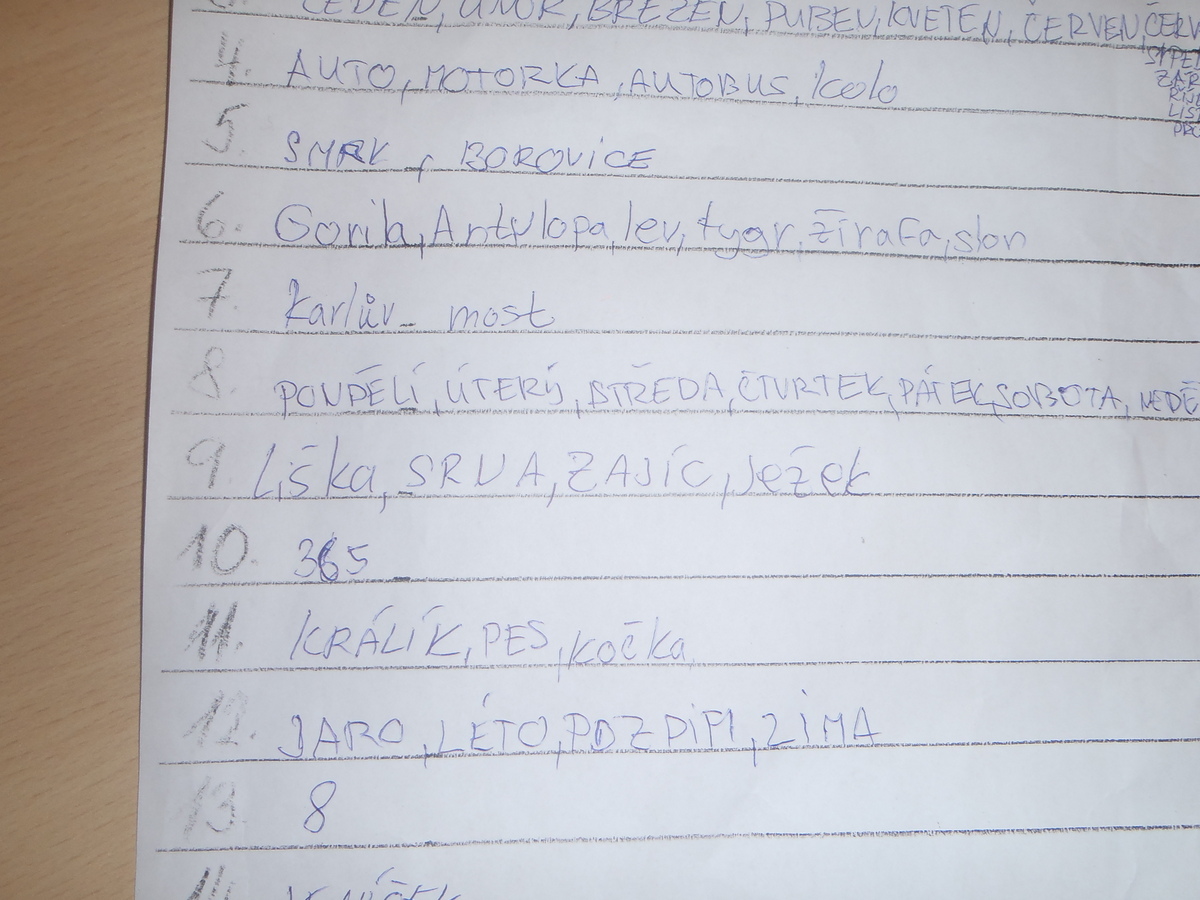 LEDEN, ÚNOR, BŘEZEN, DUBEN, KVĚTEN, ČERVEN, ČERV
SRPE
ZÁŘ
ŘÍJ
LIS
PRO
4. AUTO, MOTORKA, AUTOBUS, kolo
5. SMRK, BOROVICE
6. Gorila, Antylopa, lev, tygr, Žirafa, slon
7. Karlův most
8. PONDĚLÍ, ÚTERÝ, STŘEDA, ČTVRTEK, PÁTEK, SOBOTA, NEDĚ
9. Liška, SRNA, ZAJÍC, Ježek
10. 365
11. KRÁLÍK, PES, kočka
12. JARO, LÉTO, PDZDIM, ZIMA
13. 8